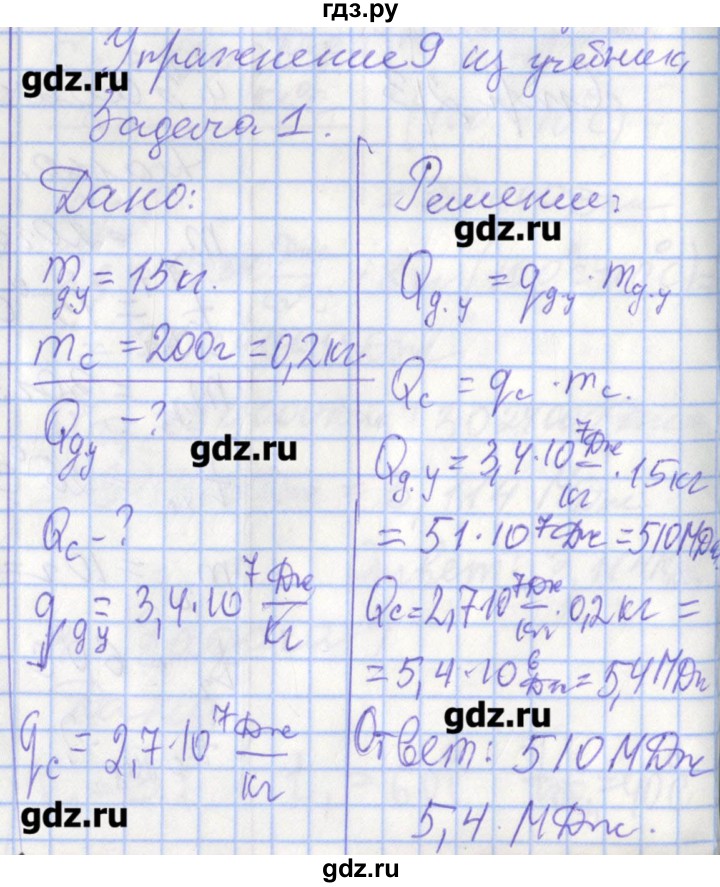 гдз.ру
Упражнение 9 из учебника
gdz.ru
Задача 1.
Дано:
m д.у = 15 кг.
m с = 200г = 0,2 кг
Q ду - ?
gdz.ru
Q с - ?
q ду = 3,4·10^7 Дж/кг
q с = 2,7·10^7 Дж/кг
gdz.ru
Решение:
gdz.ru
Q д.у = q ду · m д.у
Q с = q с · m с.
Q д.у = 3,4·10^7 Дж/кг · 15 кг
= 51·10^7 Дж = 510 МДж.
Q с = 2,7·10^7 Дж/кг · 0,2 кг =
= 5,4·10^6 Дж = 5,4 МДж
gdz.ru
Ответ: 510 МДж
5,4 МДж.
gdz.ru